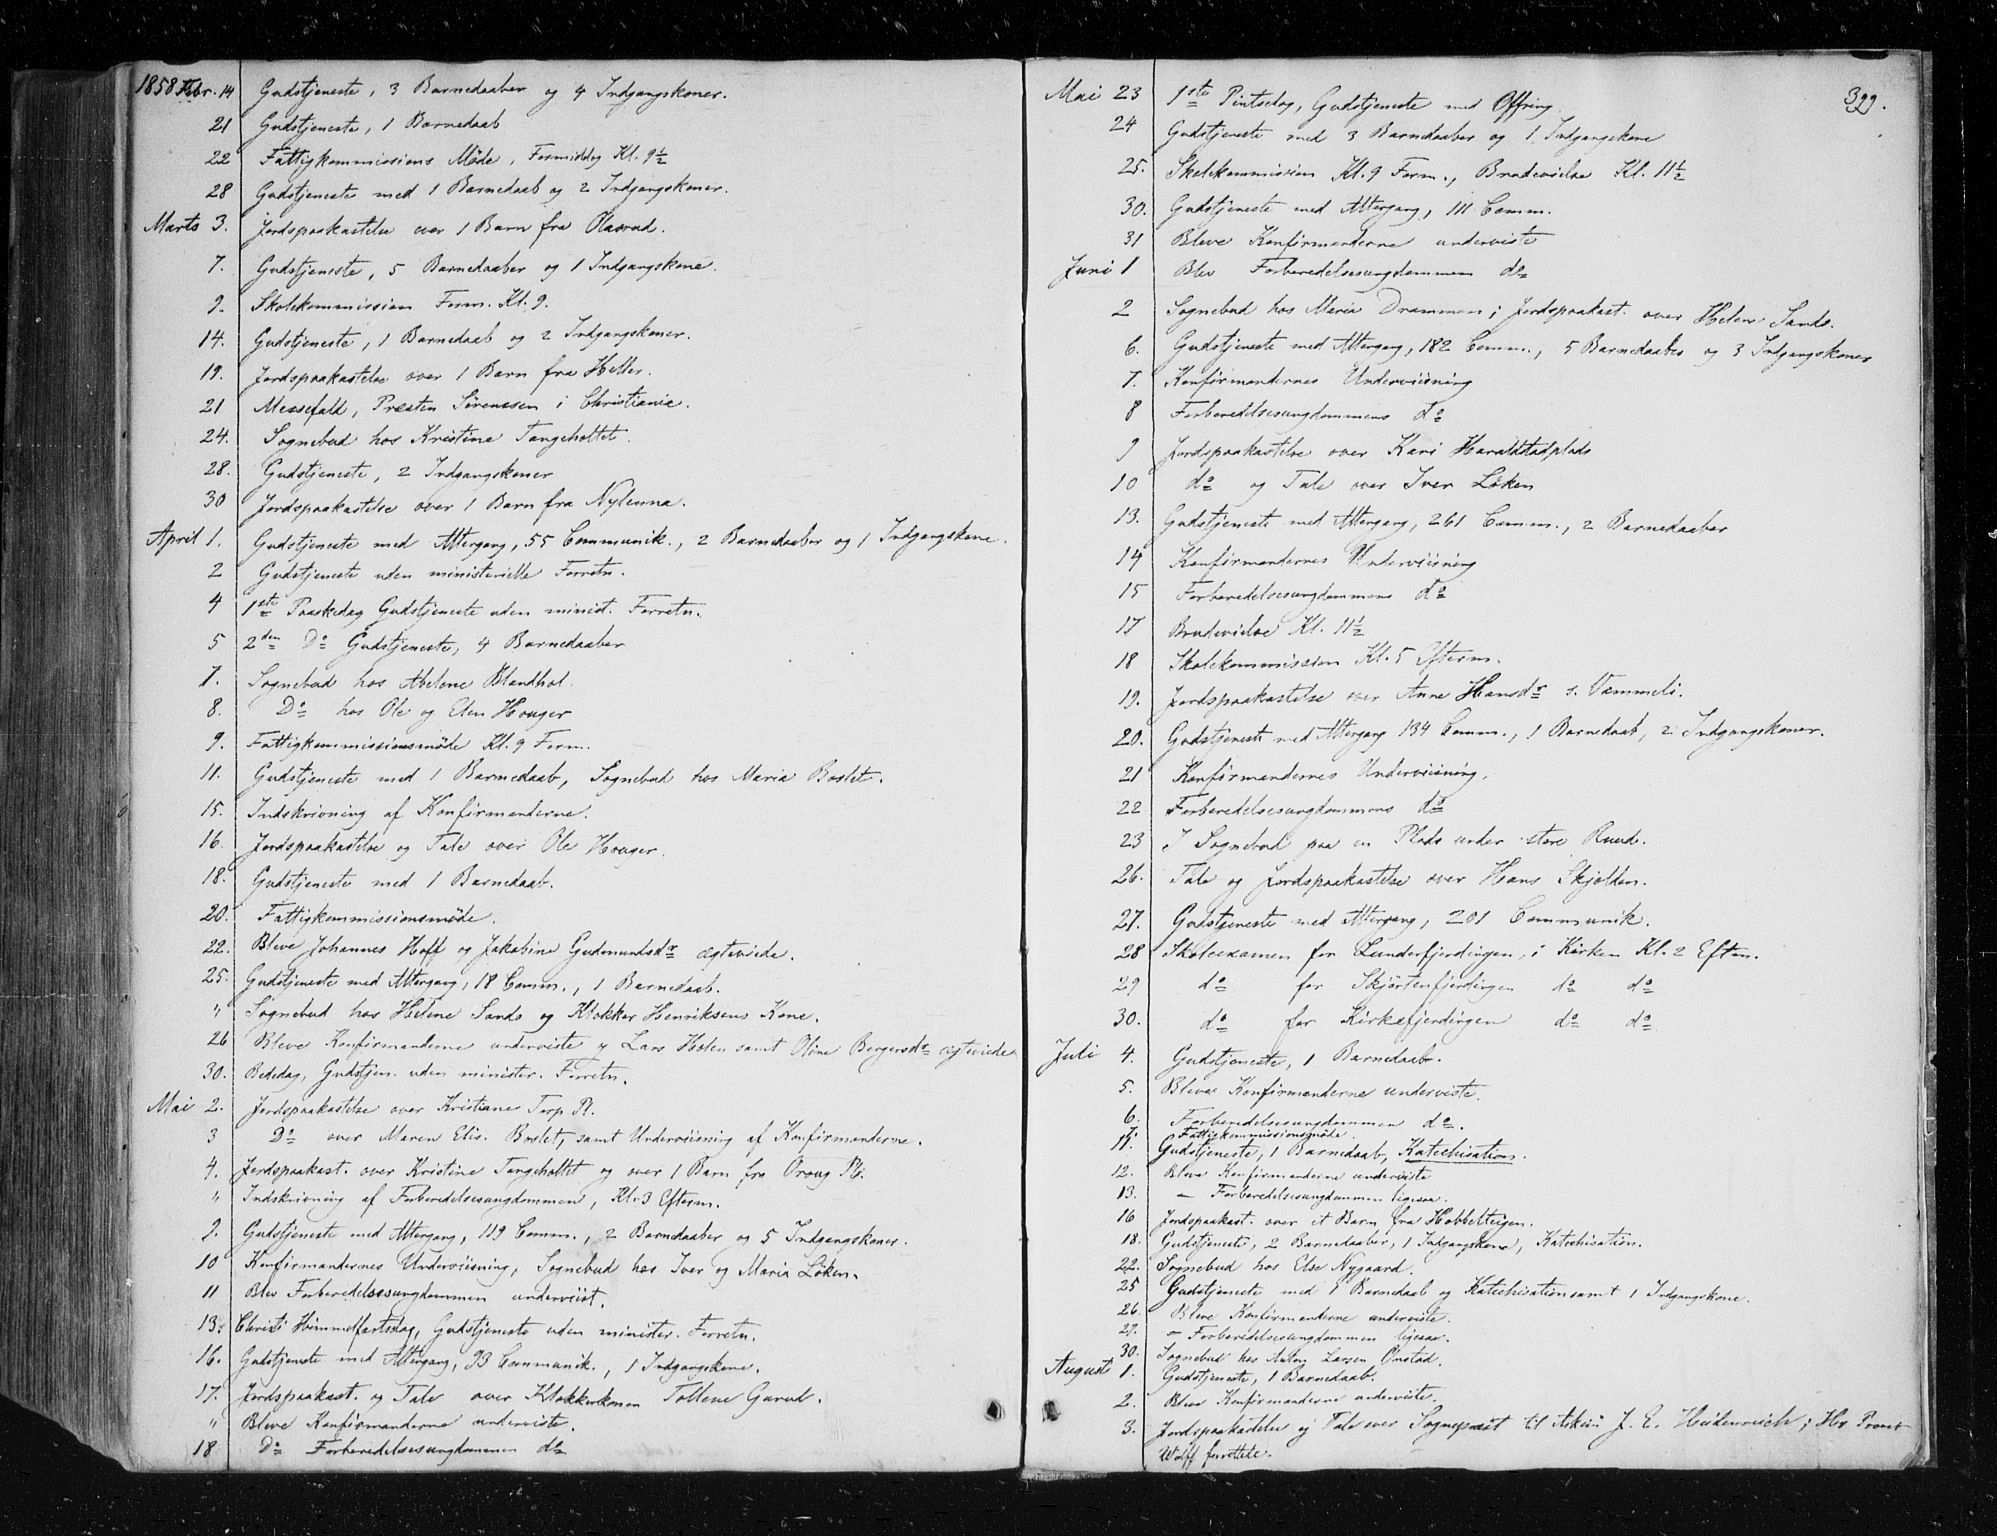 1858 Febr. 14 Gudstjeneste, 3 Barnedaaber og 4 Indgangskoner.
21 Gudstjeneste, 1 Barnedaab
22 Fattigkommissions Möde, Formiddag Kl. 9½
28 Gudstjeneste med 1 Barnedaab og 2 Indgangskoner.
Marts 3. Jordspaakastelse over 1 Barn fra Olasrud.
7. Gudstjeneste, 5 Barnedaaber og 1 Indgangskone.
9. Skolekommission Form. Kl. 9.
14. Gudstjeneste, 1 Barnedaab og 2 Indgangskoner.
19. Jordspaakastelse over 1 Barn fra Heller.
21 Messefald, Præsten Sörenssen i Christiania.
24. Sognebud hos Kristine Tangeholtet.
28. Gudstjeneste, 2 Indgangskoner
30 Jordspaakastelse over 1 Barn fra Nylenna.
April 1. Gudstjeneste med Altergang, 55 Communik., 2 Barnedaaber og 1 Indgangskone.
2 Gudstjeneste uden ministerielle Forretn.
4 1ste Paaskedag Gudstjeneste uden minist. Forretn.
5 2den Do Gudstjeneste, 4 Barnedaaber
7. Sognebud hos Abelone Blandhol.
8. Do hos Ole og Elen Houger
9. Fattigkommissionsmöde Kl. 9 Form.
11. Gudstjeneste med 1 Barnedaab, Sognebud hos Maria Boslet.
15. Indskrivning af Konfirmanderne.
16. Jordspaakastelse og Tale over Ole Houger.
18. Gudstjeneste med 1 Barnedaab.
20. Fattigkommissionsmöde.
22. Bleve Johannes Hoff og Jakobine Gudmundsdr ægteviede.
25. Gudstjeneste med Altergang, 18 Comm., 1 Barnedaab.
" Sognebud hos Helene Sands og Klokker Henriksens Kone.
26 Bleve Konfirmanderne underviste og Lars Holen samt Oline Borgersdr ægteviede
30. Bededag, Gudstjen. uden minister. Forretn.
Mai 2. Jordspaakastelse over Kristiane Torp Pl.
3 Do over Maren Elis. Boslet, samt Underviisning af Konfirmanderne.
4. Jordspaakast. over Kristine Tangeholtet og over 1 Barn fra Oroug Pl.
" Indskrivning af Forberedelsesungdommen, Kl. 3 Efterm.
9. Gudstjeneste med Altergang, 119 Comm., 2 Barnedaaber og 5 Indgangskoner.
10 Konfirmandernes Underviisning, Sognebud hos Iver og Maria Löken.
11 Blev Forberedelsesungdommen underviist.
13. Christi Himmelfartsdag, Gudstjeneste uden minister. Forretn.
16. Gudstjeneste med Altergang, 93 Communik., 1 Indgangskone.
17. Jordspaakast. og Tale over Klokkerkonen Tollene Garud.
" Bleve Konfirmanderne underviste.
18 Do Forberedelsesungdommen do
399.
Mai 23 1ste Pintsedag, Gudstjeneste med Offring.
24 Gudstjeneste med 3 Barnedaaber og 1 Indgangskone
25. Skolekommission Kl. 9 Form., Brudevielse Kl. 11½
30. Gudstjeneste med Altergang, 111 Comm.
31 Bleve Konfirmanderne underviste
Juni 1 Blev Forberedelsesungdommen do
2 Sognebud hos Maria Drammen; Jordspaakast. over Helene Sands.
6. Gudstjeneste med Altergang, 182 Comm., 5 Barnedaaber og 3 Indgangskoner
7. Konfirmandernes Underviisning
8 Forberedelsesungdommens do
9 Jordspaakastelse over Kari Haraldstadplads
10 do og Tale over Iver Löken
13. Gudstjeneste med Altergang, 261 Comm., 2 Barnedaaber
14 Konfirmandernes Underviisning
15 Forberedelsesungdommens do
17 Brudevielse Kl. 11½
18 Skolekommission Kl. 5 Efterm.
19. Jordspaakastelse over Anne Hansdr s. Vammeli.
20. Gudstjeneste med Altergang 134 Comm., 1 Barnedaab, 2 Indgangskoner.
21 Konfirmandernes Underviisning.
22 Forberedelsesungdommens do
23 I Sognebud paa en Plads under store Ruud.
26. Tale og Jordspaakastelse over Hans Skjolden.
27. Gudstjeneste med Altergang, 201 Communik.
28 Skoleexamen for Lunderfjerdingen, i Kirken Kl. 2 Eftm.
29 do for Skjörtenfjerdingen do do
30. do for Kirkefjerdingen do do
Juli 4. Gudstjeneste, 1 Barnedaab.
5. Bleve Konfirmanderne underviste.
6. Forberedelsesungdommen do.
7. Fattigkommissionsmöde.
11. Gudstjeneste, 1 Barnedaab, Katechisation.
12. Bleve Konfirmanderne underviste
13. — Forberedelsesungdommen ligesaa.
16 Jordspaakast. over et Barn fra Hobbelteigen.
18. Gudstjeneste, 2 Barnedaaber, 1 Indgangskone, Katechisation.
22. Sognebud hos Else Nygaard.
25 Gudstjeneste med 1 Barnedaab og Katechisation samt 1 Indgangskone.
26. Bleve Konfirmanderne underviste.
27. — Forberedelsesungdommen ligesaa.
30. Sognebud hos Anton Larsen Onstad.
August 1. Gudstjeneste, 1 Barnedaab.
2. Bleve Konfirmanderne underviste.
3. Jordspaakastelse og Tale over Sognepræst til Askim J. E. Heidenreich; Hr Provst
Wolff forrettede.